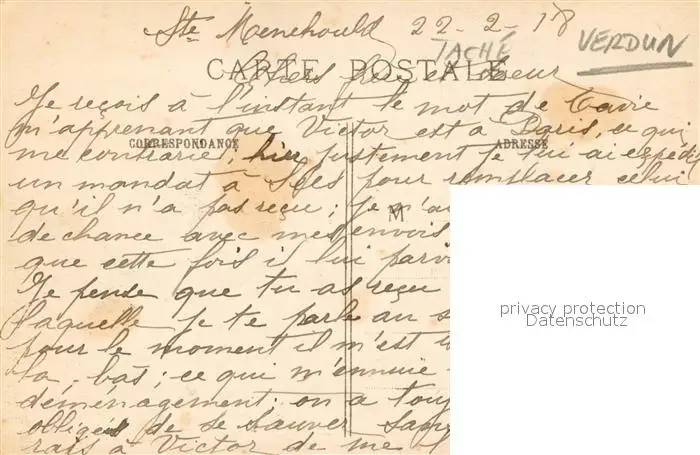 Ste Menehould 22-2-18
TACHÉ
VERDUN
CARTE POSTALE
Chers frère et soeur
Je reçois à l'instant le mot de
m'apprenant que Victor est à Paris, ce qui
CORRESPONDANCE
ADRESSE
me contrarie; hier justement je lui ai expédié
un mandat à pour remplacer celui
qu'il n'a pas reçu; je n'ai
M
de chance avec mes envois
que cette fois il lui
Je pense que tu as reçu
laquelle je te parle au
pour le moment il m'est
là-bas; ce qui m'ennuie
déménagement on a
obligés de se sauver sans
rais à Victor de me
privacy protection
Datenschutz